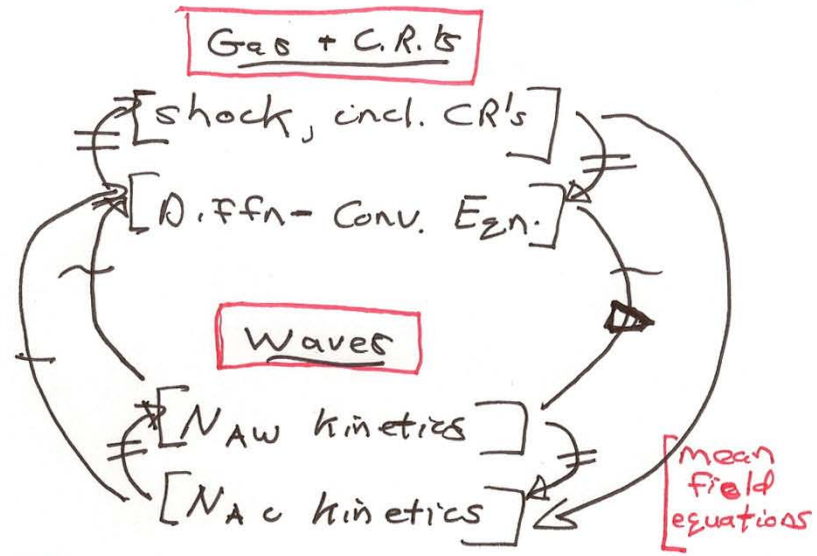 Gas + C.R.'s
[shock, incl. CR's]
[Diffn- Conv. Eqn.]
Waves
[N AW kinetics]
[N Ac kinetics]
[mean
field
equations